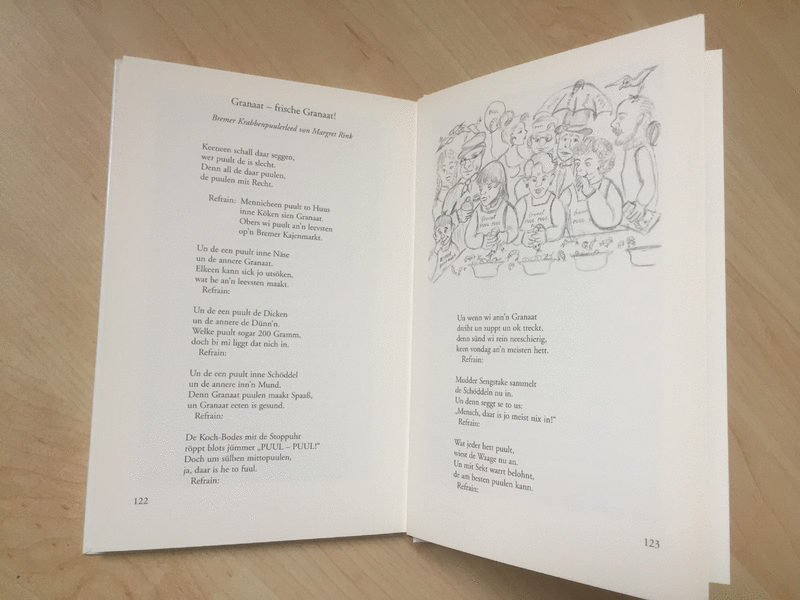 Granaat – frische Granaat!
Bremer Krabbenpuulerleed von Margret Rink
Keeneen schall daar seggen,
wer puult de is slecht.
Denn all de daar puulen,
de puulen mit Recht.
Refrain: Mennicheen puult to Huus
inne Köken sien Granaat.
Obers wi puult an'n leevsten
op'n Bremer Kajenmarkt.
Un de een puult inne Näse
un de annere Granaat.
Elkeen kann sick jo utsöken,
wat he an'n leevsten maakt.
Refrain:
Un de een puult de Dicken
un de annere de Dünn'n.
Welke puult sogar 200 Gramm,
doch bi mi liggt dat nich in.
Refrain:
Un de een puult inne Schöddel
un de annere inn'n Mund.
Denn Granaat puulen maakt Spaaß,
un Granaat eeten is gesund.
Refrain:
De Koch-Bodes mit de Stoppuhr
röppt blots jümmer „PUUL – PUUL!"
Doch um sülben mittopuulen,
ja, daar is he to fuul.
Refrain:
122
Un wenn wi ann'n Granaat
dreiht un ruppt un ok treckt,
denn sünd wi rein neeschierig,
keen vondag an'n meisten hett.
Refrain:
Mudder Sengstake sammelt
de Schöddeln nu in.
Un denn seggt se to us:
„Mensch, daar is jo meist nix in!"
Refrain:
Wat jeder hett puult,
wiest de Waage nu an.
Un mit Sekt warrt belohnt,
de am besten puulen kann.
Refrain:
123